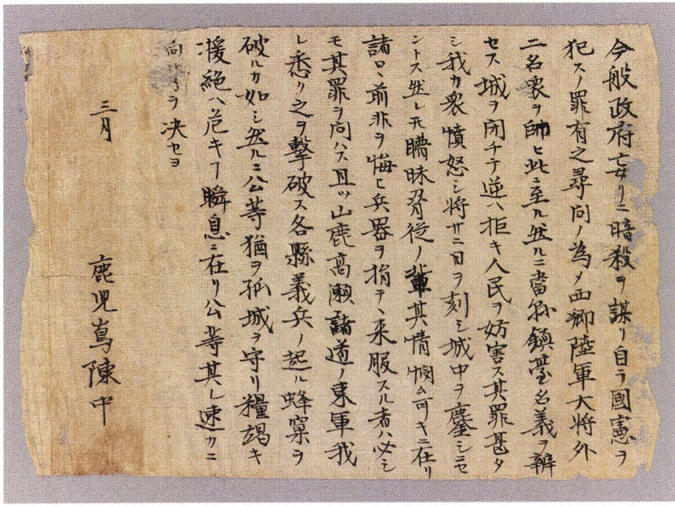 今般政府妄リニ暗殺ヲ謀リ自ラ國憲ヲ
犯スノ罪有之尋問ノ為メ西郷陸軍大将外
二名衆ヲ帥ヒ此ニ至ル然ルニ當縣鎮臺名義ヲ辨
セス城ヲ閉チテ逆ヘ拒キ人民ヲ妨害ス其罪甚タ
シ我カ衆憤怒シ将サニ日ヲ刻シ城中ヲ鏖ニセ
ントス然レ𪜈曚昧脅従ノ輩其情憫ム可キニ在リ
諸口前非ヲ悔ヒ兵器ヲ捨テヽ来服スル者ハ必シ
モ其罪ヲ問ハス且ツ山鹿高瀬諸道ノ東軍我
レ悉ク之ヲ撃破ス各縣義兵ノ起ル蜂窠ヲ
破ルカ如シ然ルニ公等猶ヲ孤城ヲ守リ糧竭キ
援絶ヘ危キヿ瞬息ニ在リ公等其レ速カニ
向ヲ決セヨ
三月
鹿児嶌陳中